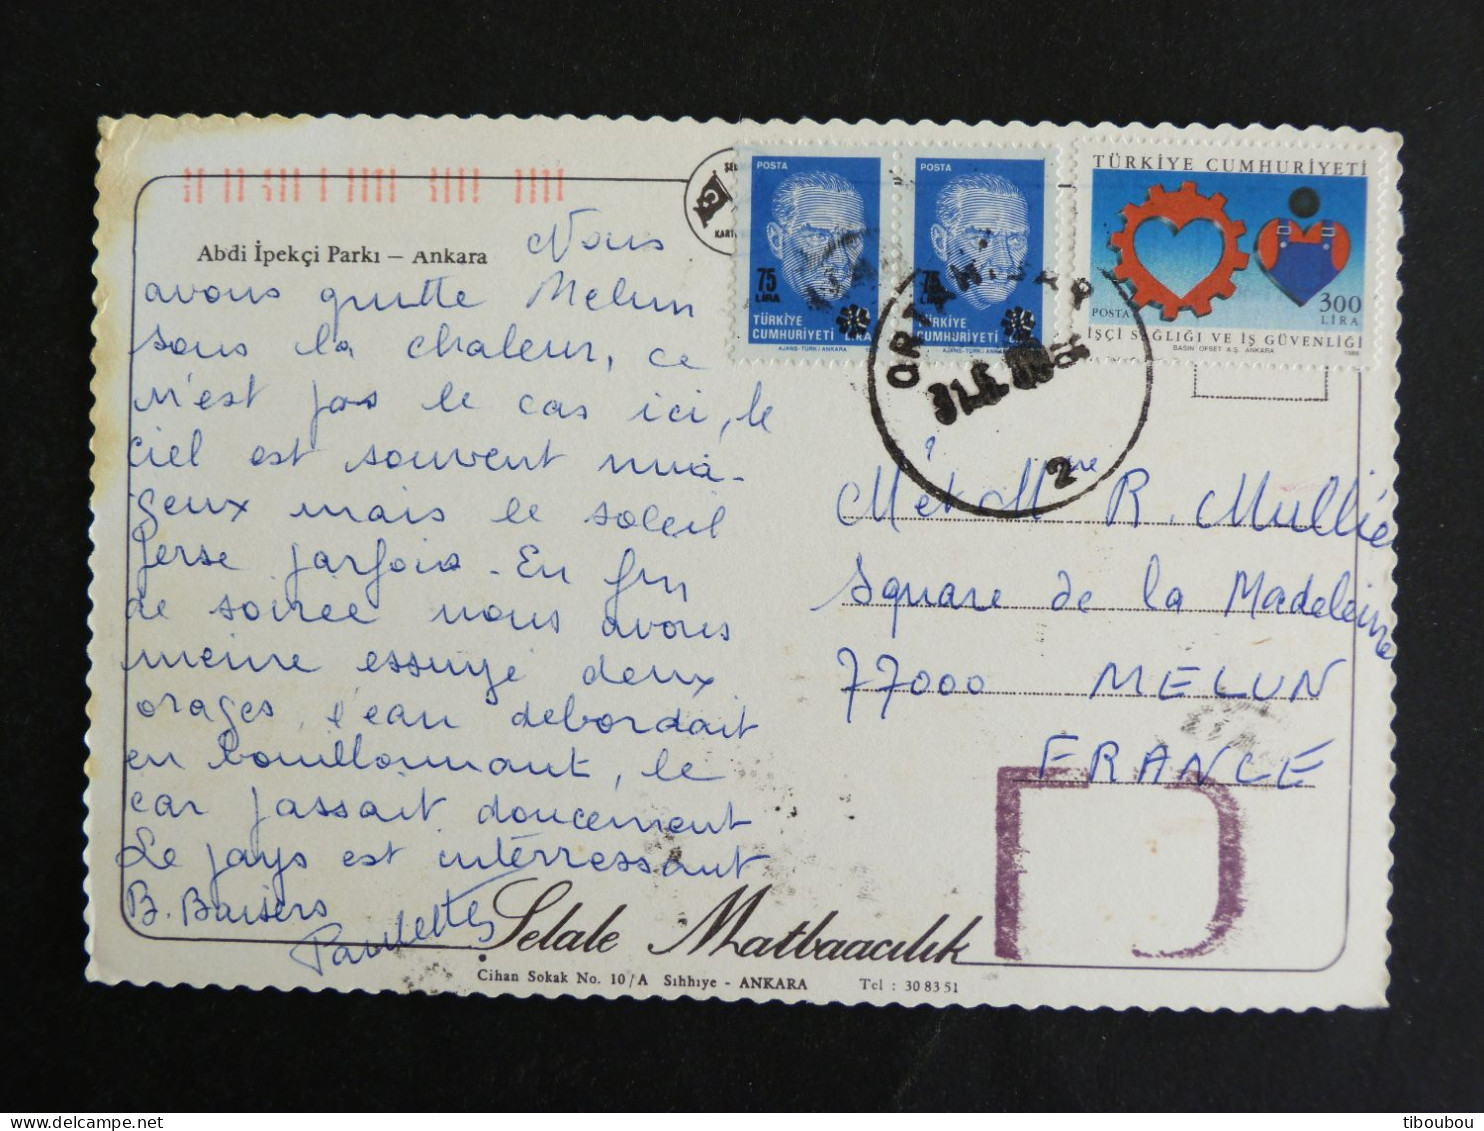 Abdi İpekçi Parkı – Ankara
Nous
avons quitte Melun
sous la chaleur, ce
n'est pas le cas ici, le
ciel est souvent nua-
geux mais le soleil
perse parfois. En fin
de soiree nous avons
meme essuyé deux
orages, l'eau debordait
en bouillonnant, le
car passait doucement
Le pays est intérressant
B. Baisers
Paulette
POSTA
75
LIRA
TÜRKİYE
CUMHURİYETİ
AJANS-TÜRK/ANKARA
POSTA
75
LIRA
TÜRKİYE
CUMHURİYETİ
AJANS-TÜRK/ANKARA
TÜRKİYE CUMHURİYETİ
300
LİRA
POSTA
İŞÇİ SAĞLIĞI VE İŞ GÜVENLİĞİ
BASIN OFSET A.Ş. ANKARA
ORTAHİSAR
2
M et Mme R. Mullié
Square de la Madeleine
77000 MELUN
FRANCE
Şelale Matbaacılık
Cihan Sokak No. 10/A Sıhhıye - ANKARA Tel : 30 83 51
tiboubou